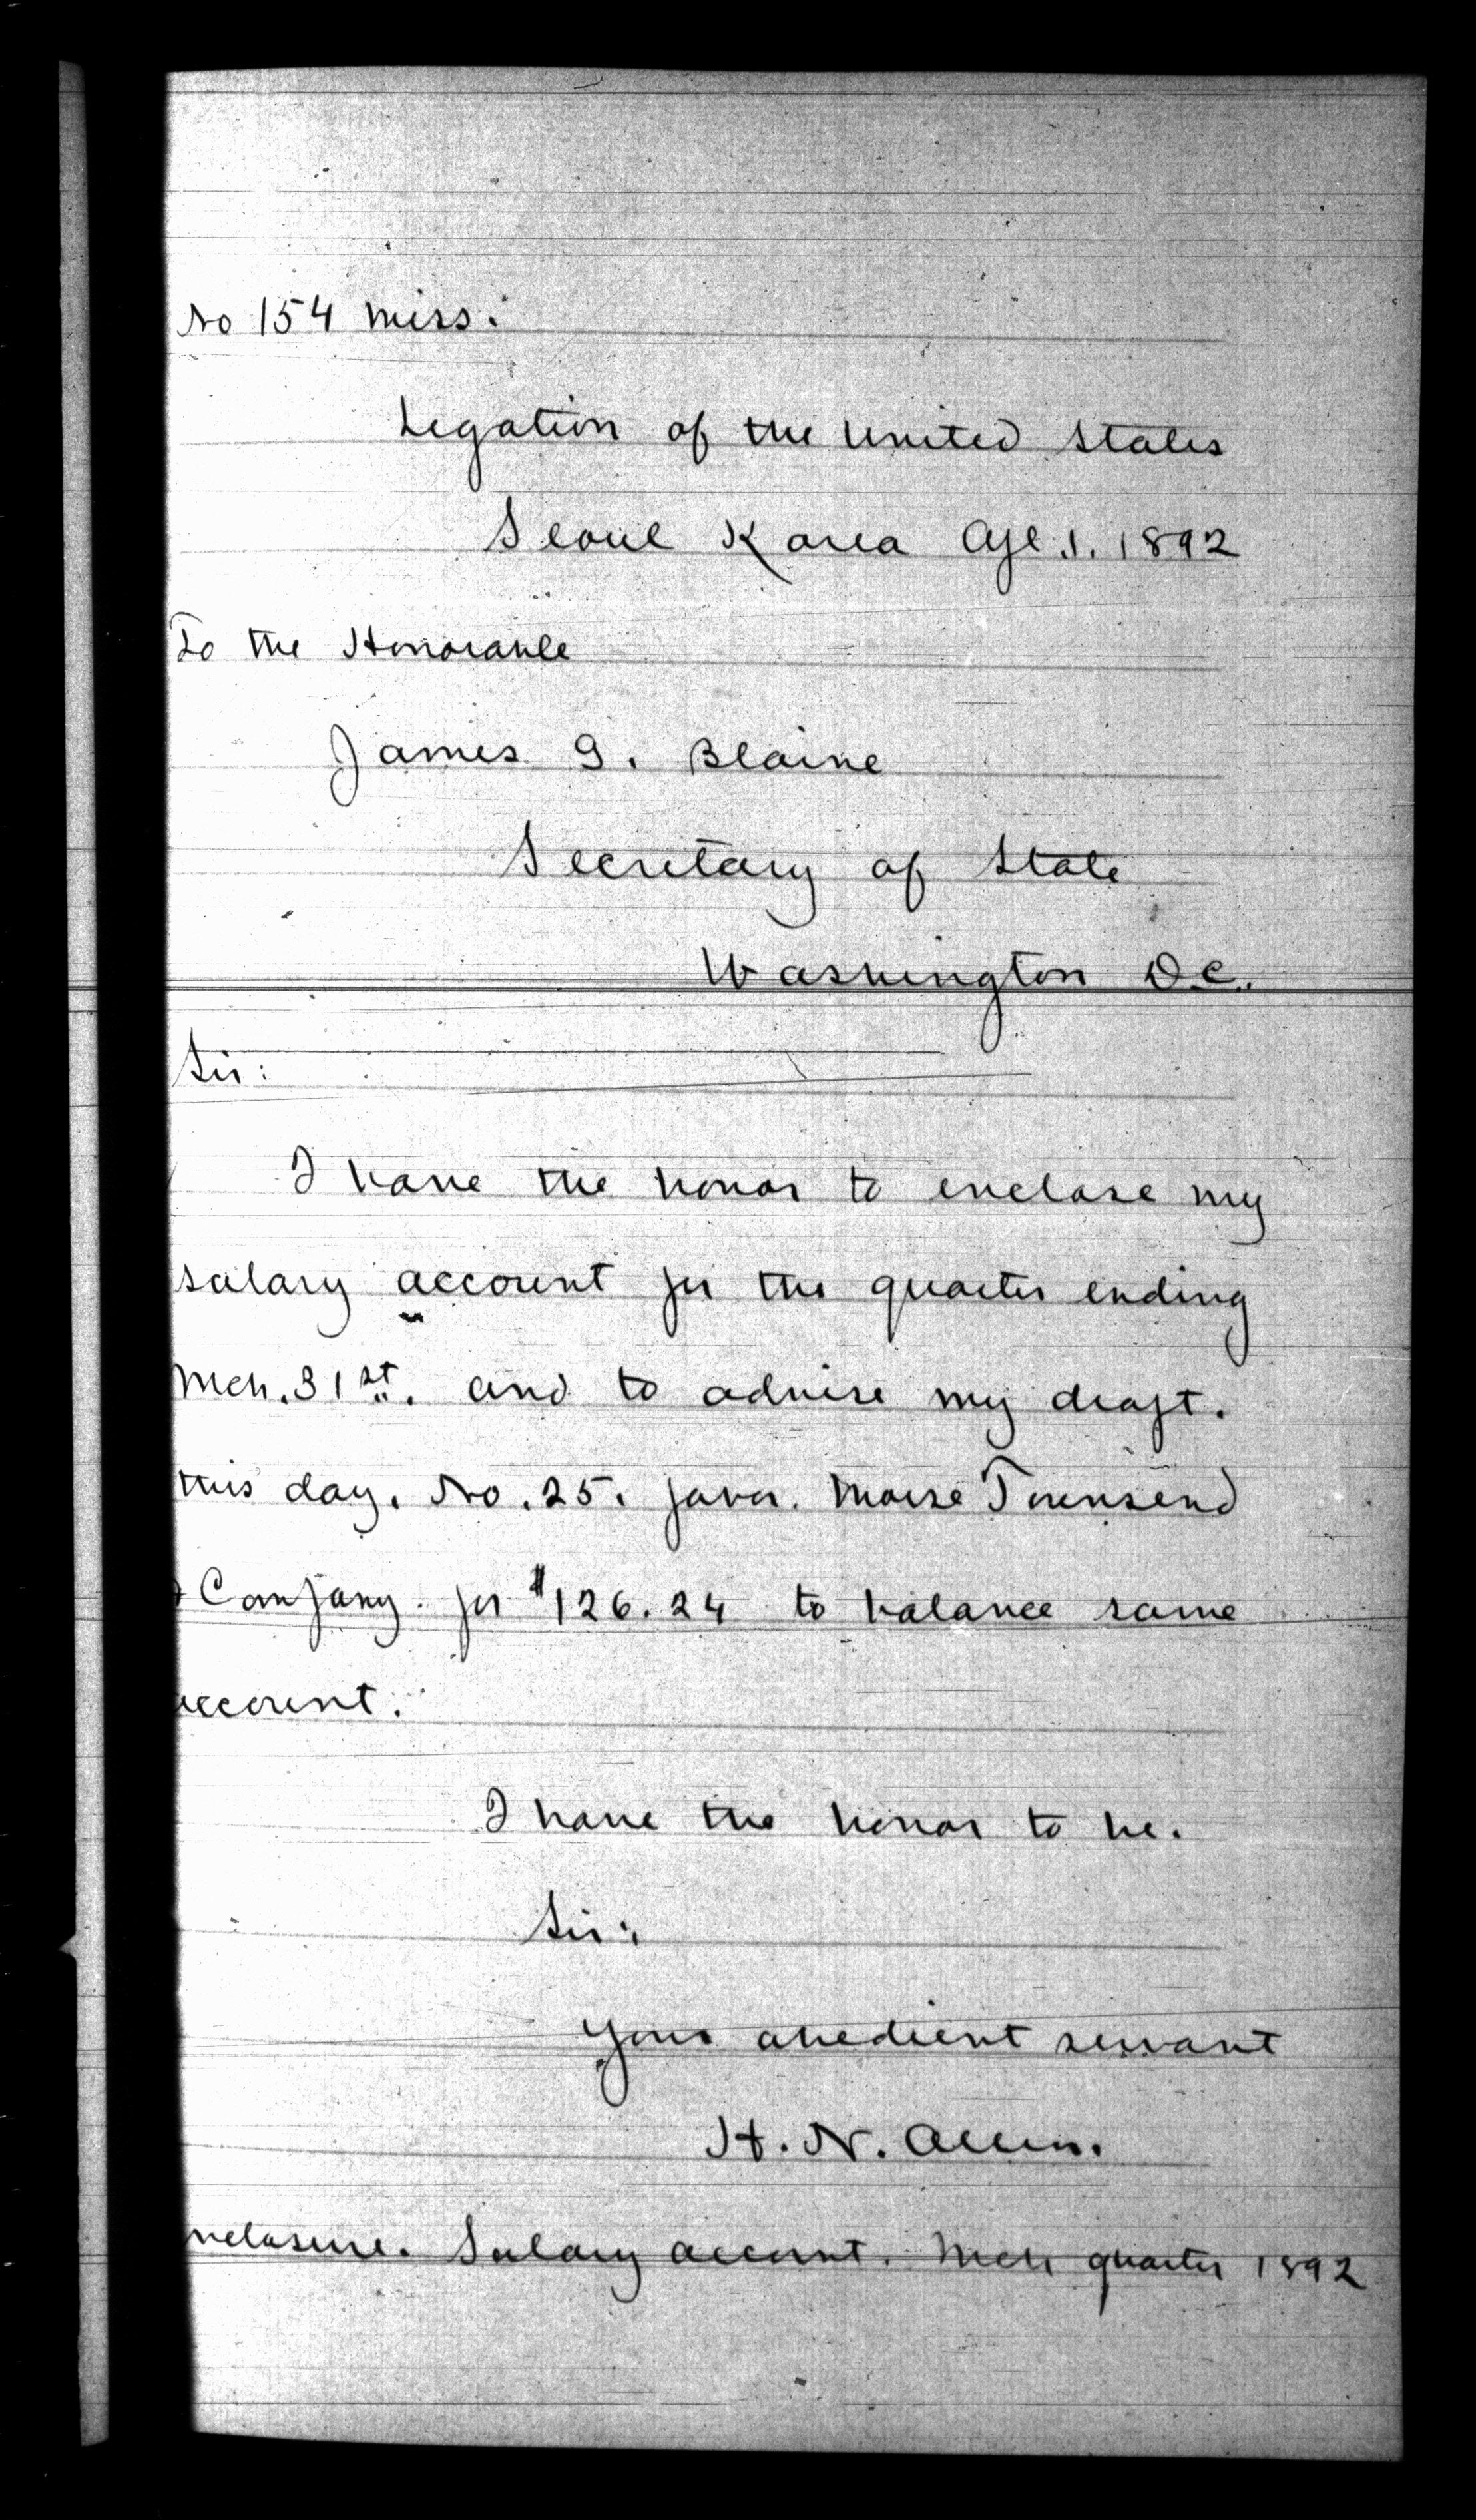 No 154 miss.
Legation of the United States
Seoul Korea Apl. 1. 1892
To the Honorable
James G. Blaine
Secretary of State
Washington D.C.
Sir:
I have the honor to enclose my
salary account for the quarter ending
Mch. 31st. and to advise my draft.
this day. No. 25. favor. Morse Townsend
& Company. for $126.24 to balance same
account.
I have the honor to be.
Sir:
Your obedient servant
H. N. Allen.
nclosure. Salary account. Mch quarter 1892